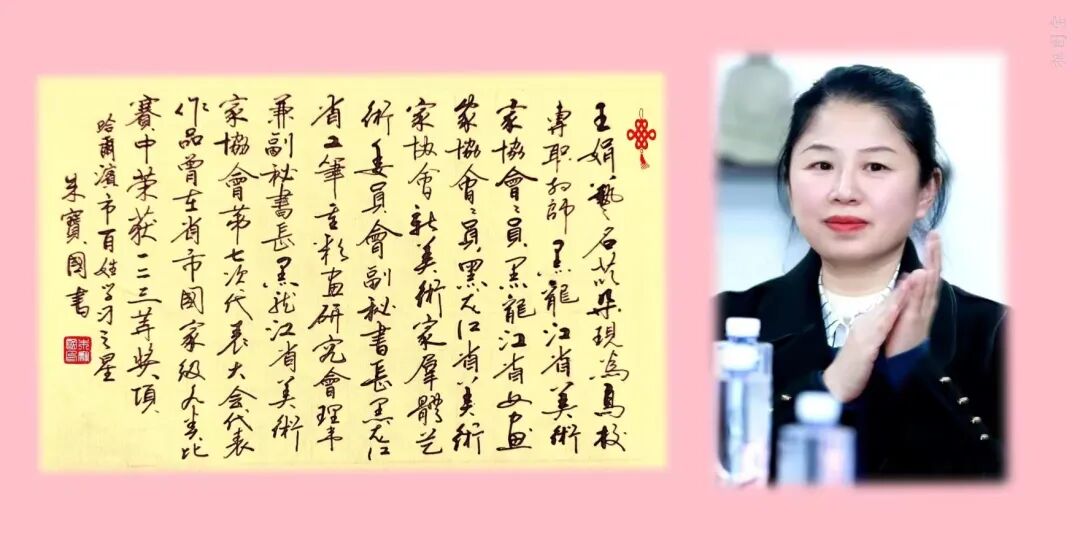 王娟藝名苡朵現為高校
專职教師黑龍江省美術
家協會會員黑龍江省女画
家協會會員黑龙江省美術
家协會新美術家羣體艺
術委員會副秘書長黑龙江
省工筆重彩画研究會理事
兼副秘書長黑龙江省美術
家協會第七次代表大会代表
作品曾在省市國家級大賽比
賽中荣获一二三等奖項
哈爾濱市百姓学习之星
朱寶國書